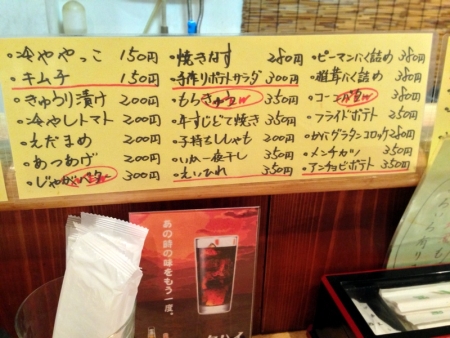 ・冷ややっこ 150円
・キムチ 150円
・きゅうり漬け 200円
・冷やしトマト 200円
・えだまめ 200円
・あつあげ 200円
・じゃがバター 300円
・焼きなす 280円
・手作りポテトサラダ 300円
・もろきゅう 350円
・牛すじどて焼き 350円
・子持ちししゃも 200円
・いか一夜干し 350円
・えいひれ 350円
・ピーマンにく詰め 380円
・椎茸にく詰め 380円
・フライドポテト 250円
・かにグラタンコロッケ 280円
・メンチカツ 350円
・アンチョビポテト 350円
あの時の味をもう一度。